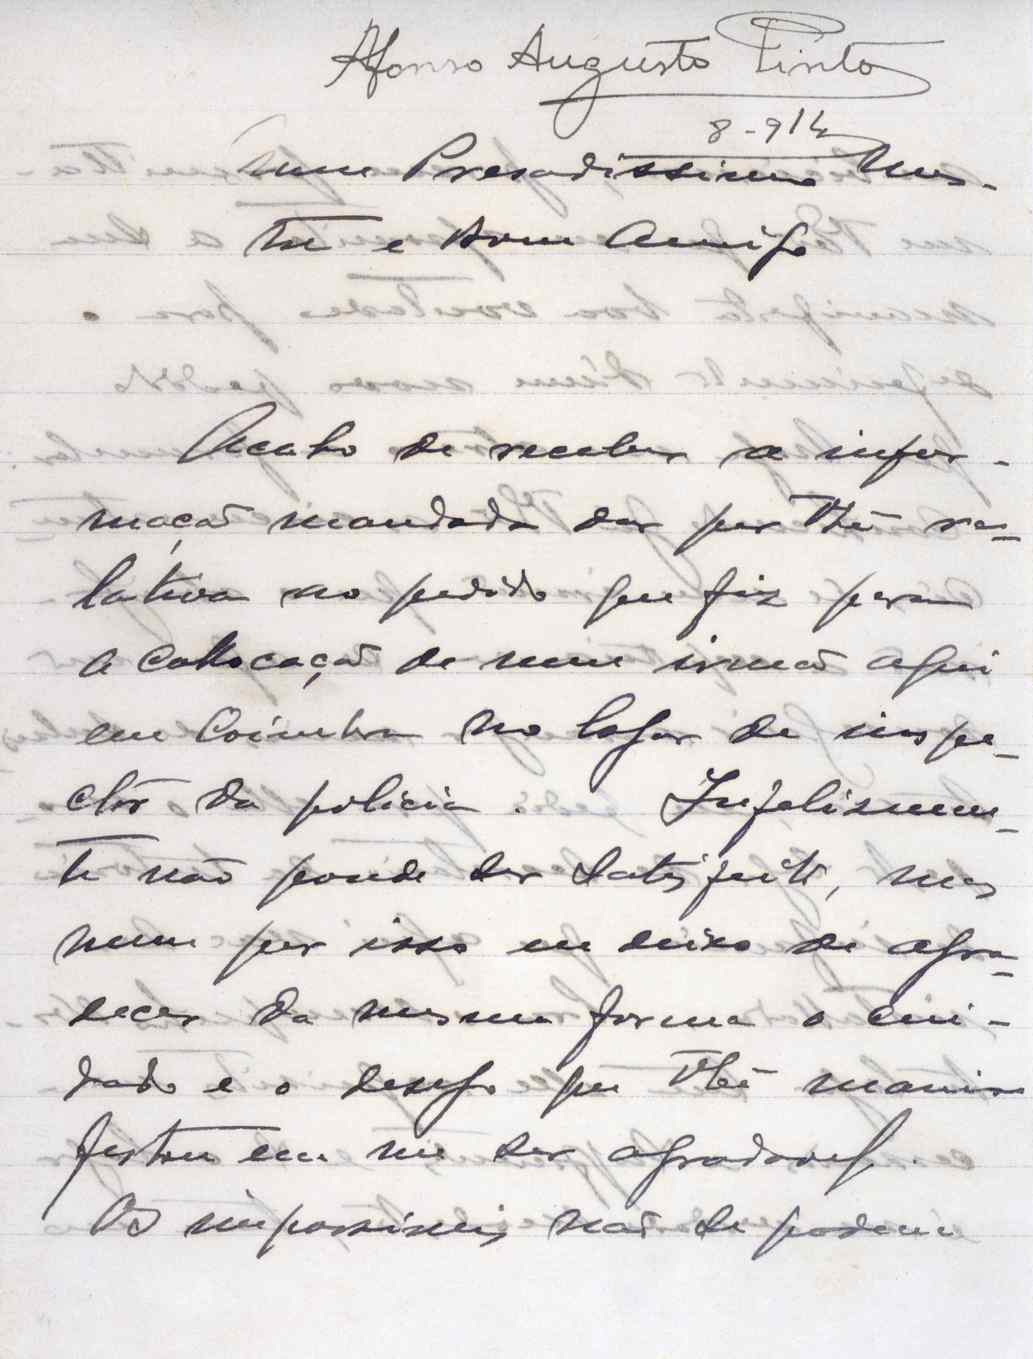 Afonso Augusto Pinto
8-914
Meu Presadissimo Mes-
tre e Bom Amigo
Acabo de receber a infor-
mação mandada dar por V. Exª re-
lativa ao pedido que fiz para
a collocação de meu irmão aqui
em Coimbra no logar de inspe-
ctôr da policia. Infelizmen-
te não poude ser satisfeito, mas
nem por isso eu deixo de agra-
decer da mesma forma o cui-
dado e o desejo que V. Exª mani-
festou em me ser agradavel.
Os impossiveis não se podem